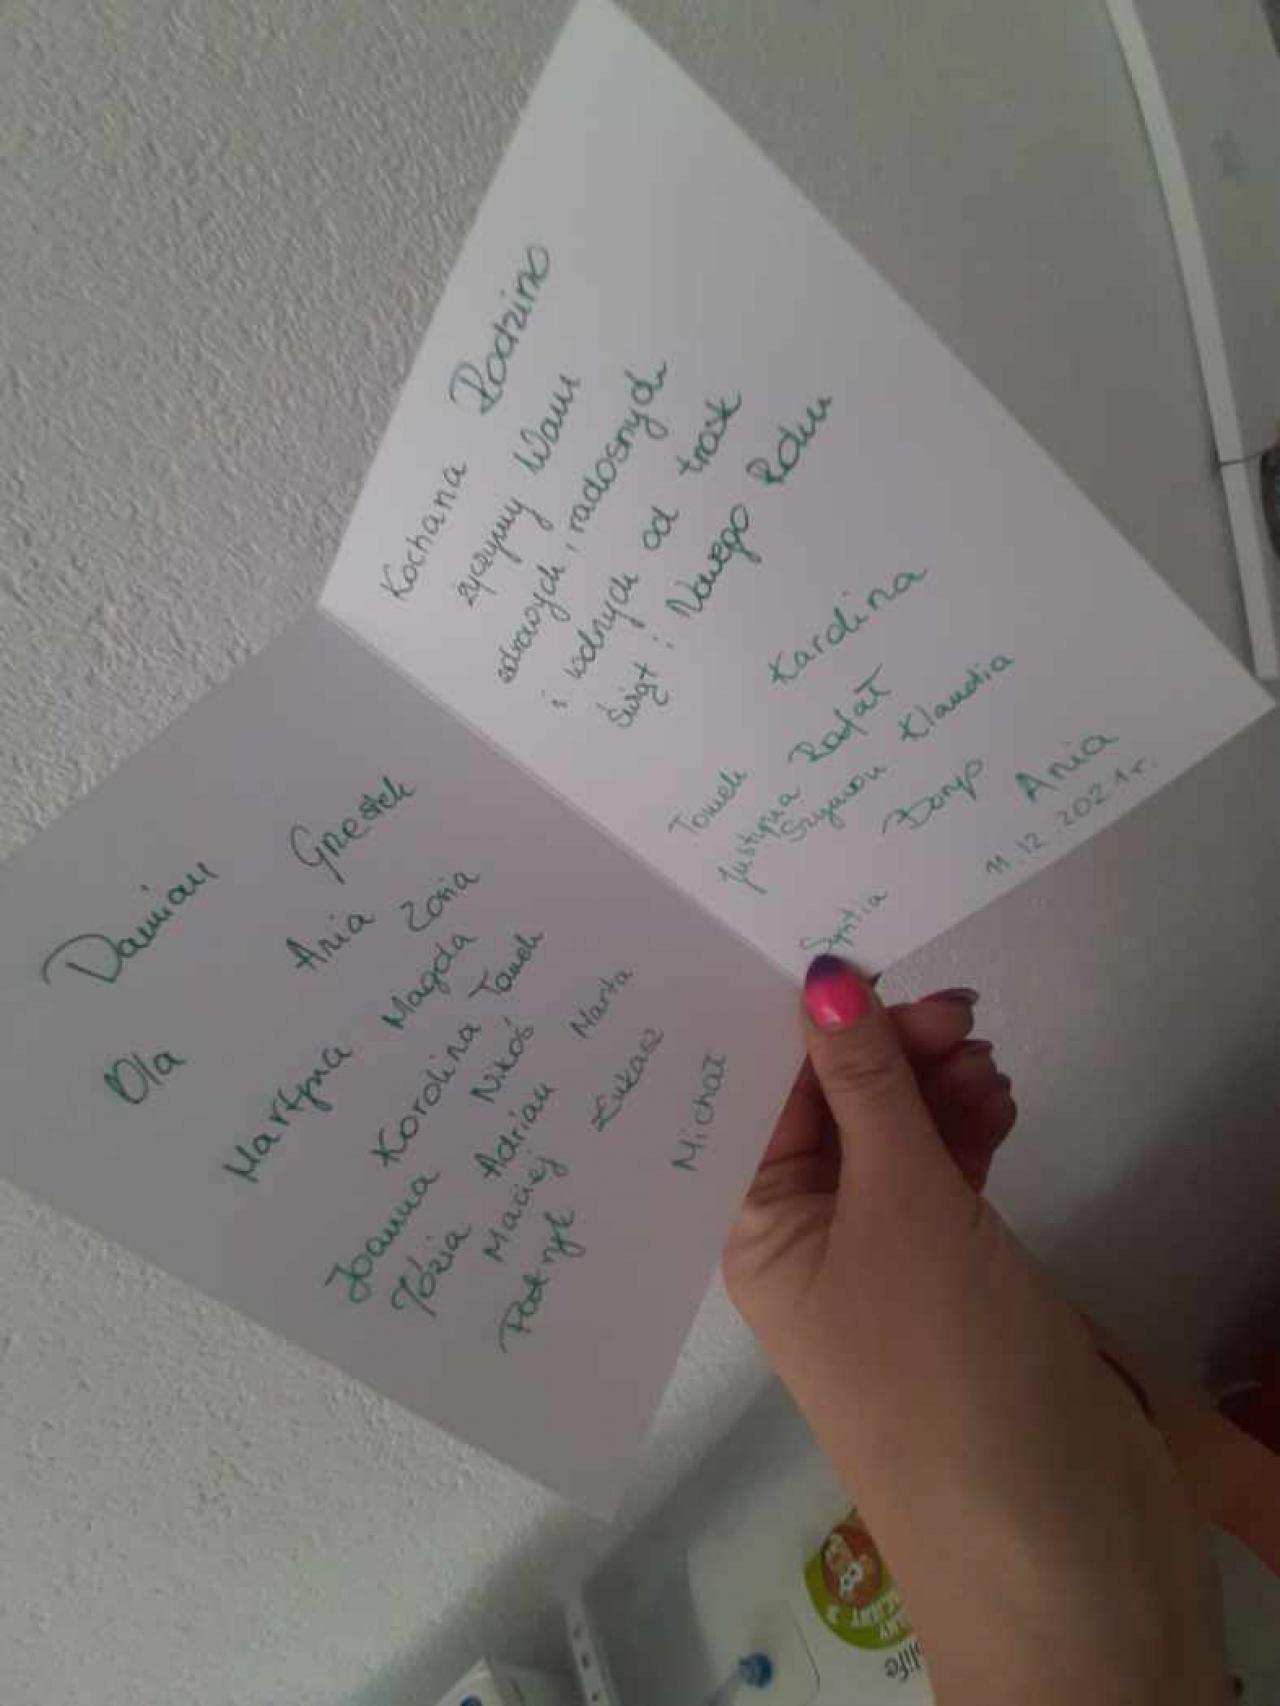 Kochana Rodzino
życzymy Wam
zdrowych, radosnych
i wolnych od trosk
Świąt i Nowego Roku
Tomek Karolina
Justyna Rafał
Szymon Klaudia
Ania
11.12.2021r.
Damian Grzesiek
Ola Ania Zosia
Martyna Magda
Karolina Tomek
Joanna Nikoś Marta
Józia Adrian
Maciej Łukasz
Patryk Michał
life